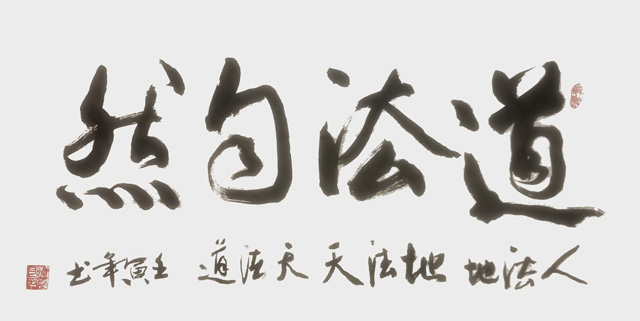 道法自然
人法地地法天天法道壬寅年书